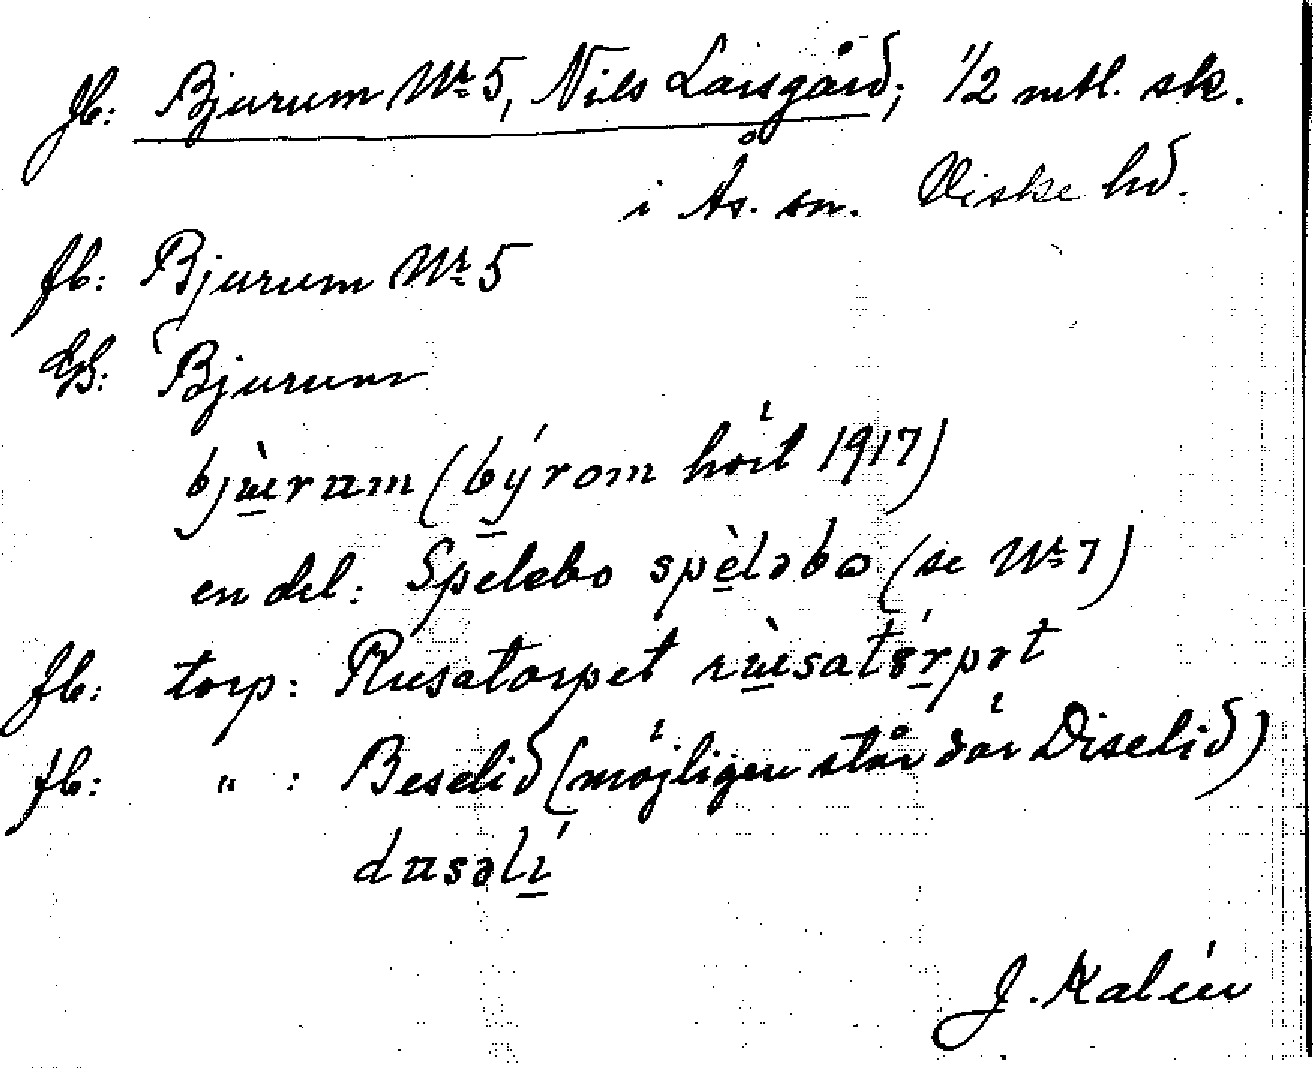 Jb: Bjurum Nr 5, Nils Larsgård; 1/2 mtl. sk.
i Ås. sn. Viske hd.
fb: Bjurum Nr 5
GB: Bjurum
bjùram (býrom hört 1917)
en del: Spelebo spèləbo (se Nr 7)
fb: torp: Rusatorpet rùsatórpət
fb: " : Beselid (möjligen står där Diselid)
dusəlí
J. Kalén